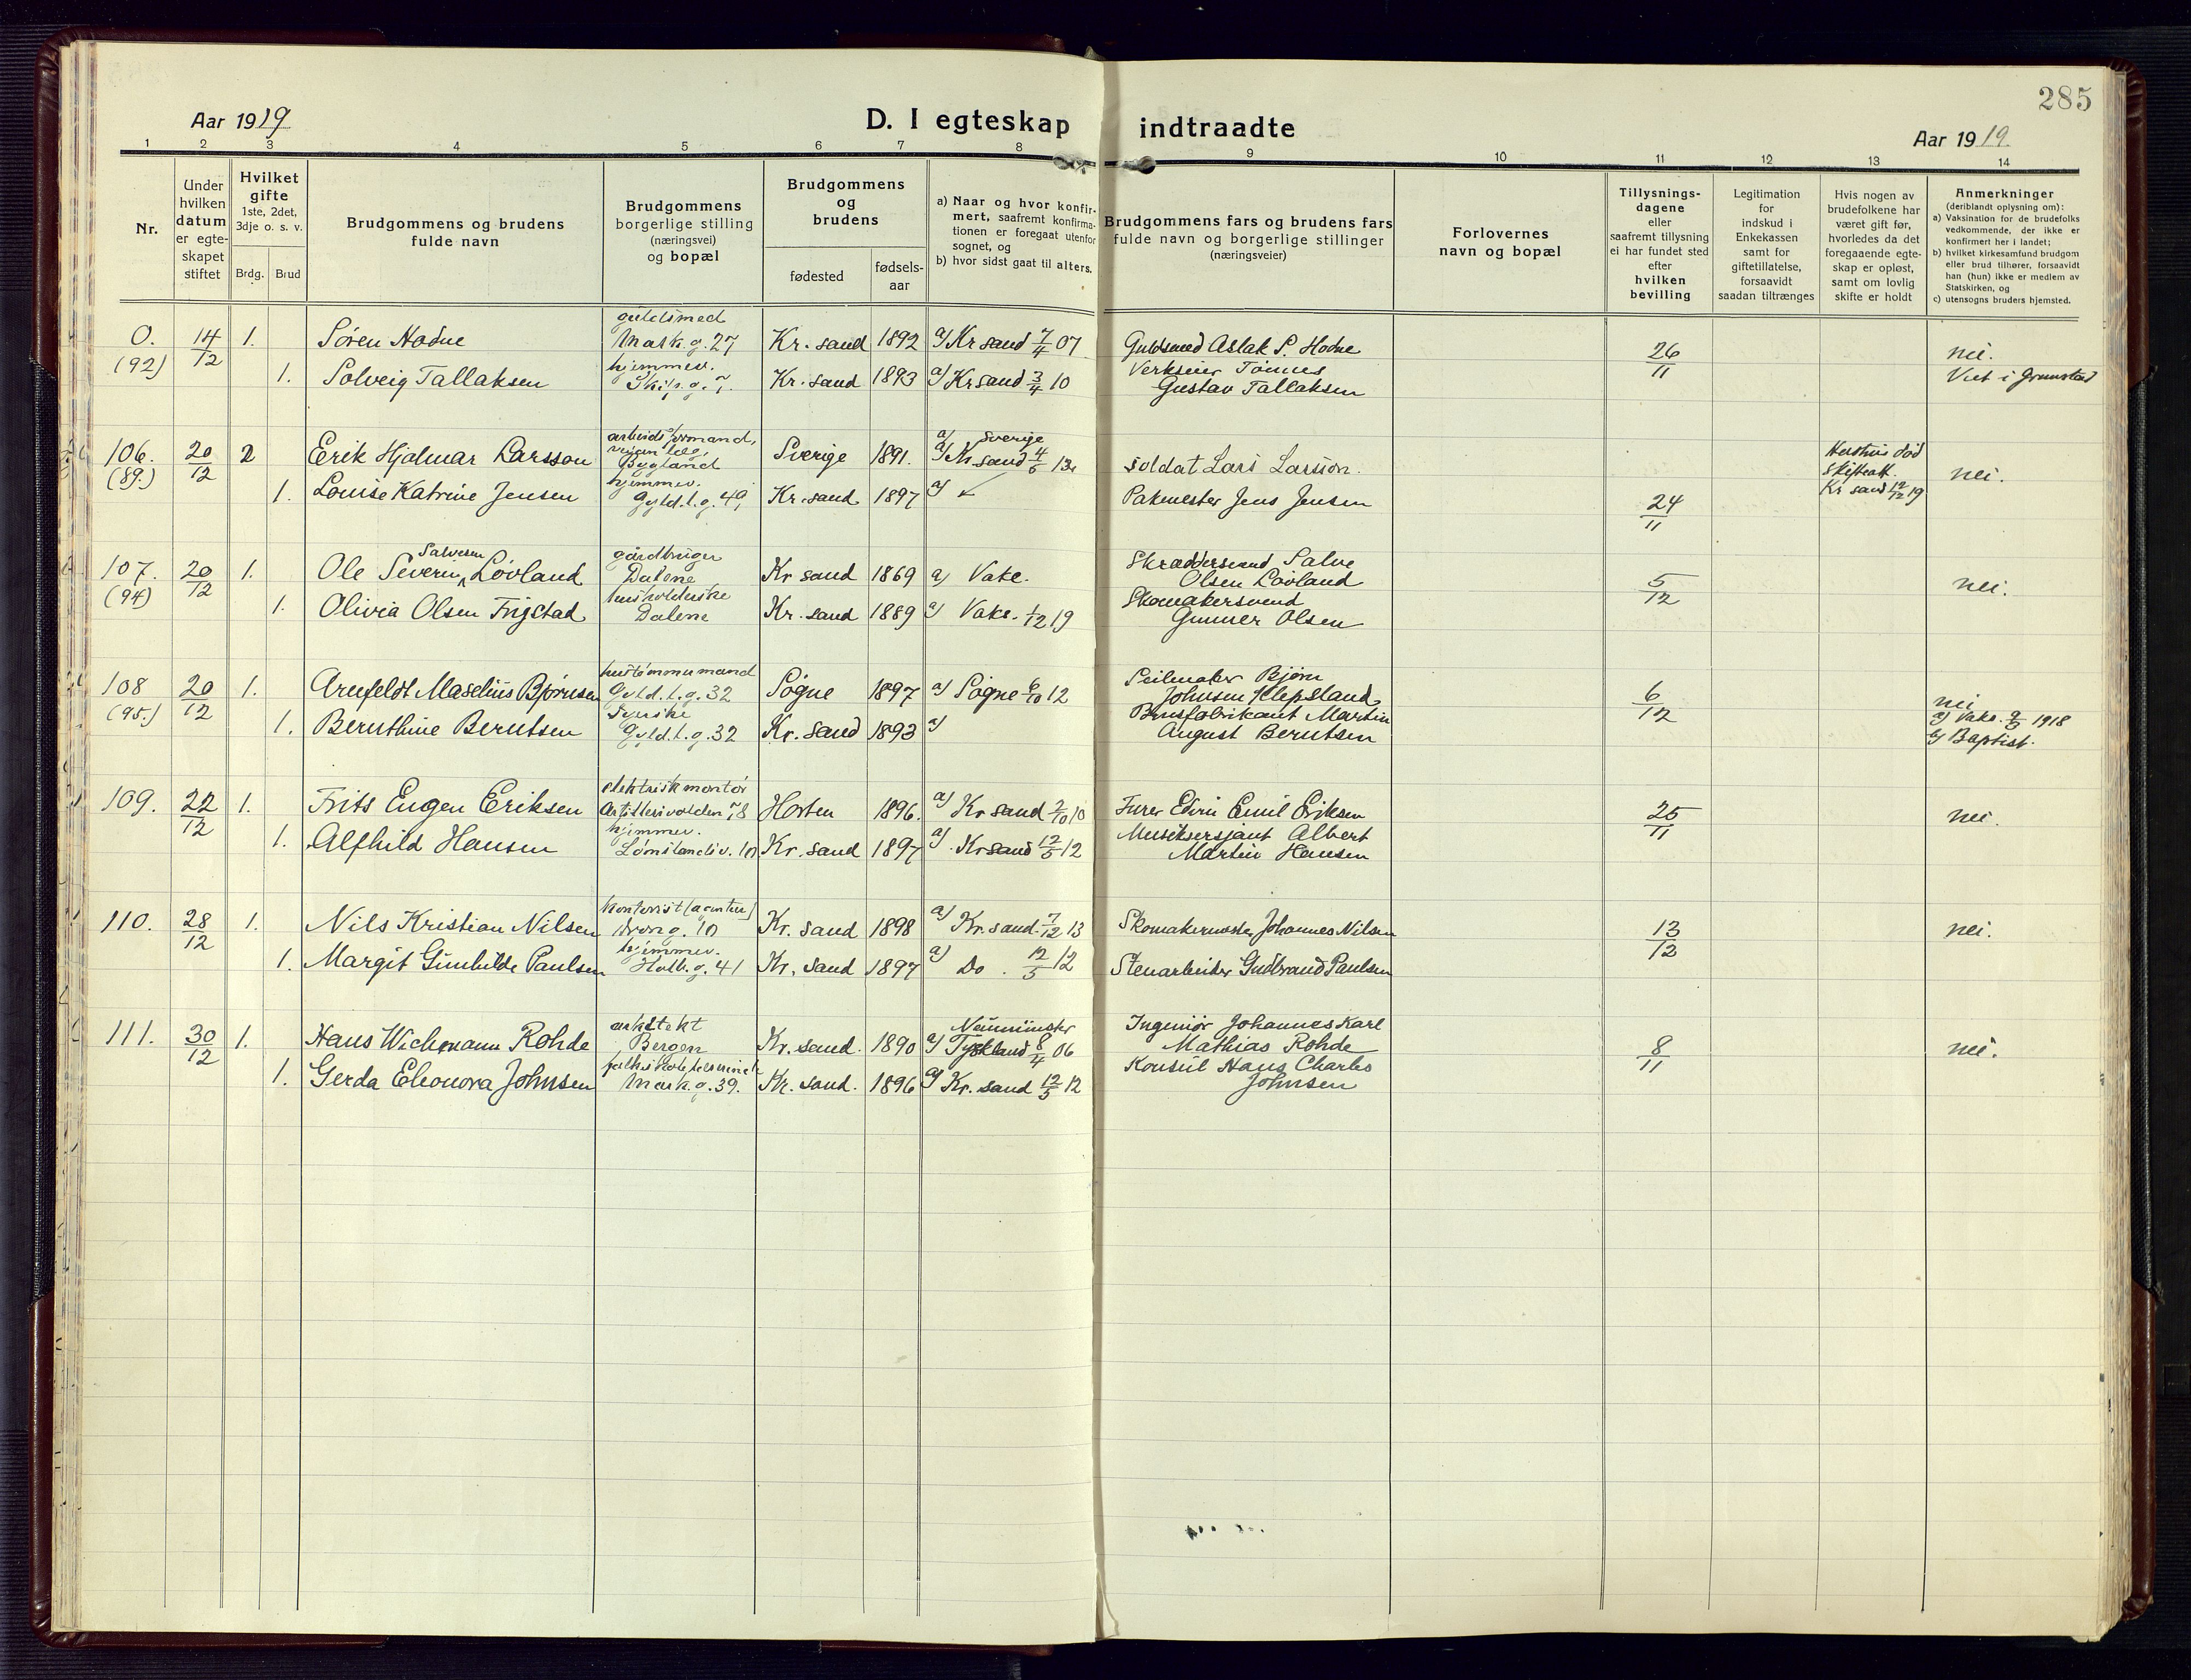 285
Aar 1919
D. I egteskap indtraadte
Aar 1919.
1 2 3 4 5 6 7 8 9 10 11 12 13 14
Nr.
Under hvilken datum er egte-skapet stiftet
Hvilket gifte 1ste, 2det, 3dje o. s. v.
Brdg. Brud
Brudgommens og brudens fulde navn
Brudgommens borgerlige stilling (næringsvei) og bopæl
Brudgommens og brudens
fødested
fødsels-aar
a) Naar og hvor konfir-mert, saafremt konfirma-tionen er foregaat utenfor sognet, og
b) hvor sidst gaat til alters.
Brudgommens fars og brudens fars fulde navn og borgerlige stillinger (næringsveier)
Forlovernes navn og bopæl
Tillysnings-dagene eller saafremt tillysning ei har fundet sted efter hvilken bevilling
Legitimation for indskud i Enkekassen samt for giftetillatelse, forsaavidt saadan tiltrænges
Hvis nogen av brudefolkene har været gift før, hvorledes da det foregaaende egte-skap er opløst, samt om lovlig skifte er holdt
Anmerkninger (deriblandt oplysning om):
a) Vaksination for de brudefolks vedkommende, der ikke er konfirmert her i landet;
b) hvilket kirkesamfund brudgom eller brud tilhører, forsaavidt han (hun) ikke er medlem av Statskirken, og
c) utensogns bruders hjemsted.
0. (92) 14/12 1. Søren Hodne guldsmed Mark.g. 27 Kr. sand 1892 a) Kr sand 7/4 07 Guldsmed Aslak S. Hodne 26/11 nei.
1. Solveig Tallaksen hjemmev. Skip.g. 7. Kr. sand 1893 a) Kr sand 3/4 10 Verkseier Tønnes Gustav Tallaksen Viet i Grimstad
106. (89.) 20/12 2 Erik Hjalmar Larsson arbeidsformand, Bygland Sverige 1891. a) Sverige soldat Lars Larsson. Hustru død skifteatt. Kr sand 12/12 19 nei.
1. Louise Katrine Jensen hjemmev. Gyld.l.g. 49 Kr. sand 1897 a) Pakmester Jens Jensen 24/11
107. (94) 20/12 1. Ole Severin Salvesen Løvland gårdbruger Dalene Kr sand 1869 a) Vake. Skræddersvend Salve Olsen Løvland 5/12 nei.
1. Olivia Olsen Frigstad husholderske Dalene Kr. sand 1889 a) Vake. 1/12 19 Skomakersvend Gunner Olsen
108 (95.) 20/12 1. Arnfeldt Maselius Bjørnsen hustømmermand Gyld.l.g. 32 Søgne 1897 a) Søgne 6/10 12 Seilmaker Bjørn Johnsen Klepsland 6/12 nei
1. Bernthine Berntsen Syerske Gyld.l.g. 32 Kr. sand 1893 a) Brusfabrikant Martin August Berntsen a) Vaks. 9/3 1918 b) Baptist.
109. 22/12 1. Frits Eugen Eriksen elektriskmontør Artillerivolden 78 Horten 1896. a) Kr sand 2/10 10 Furer Edvin Emil Eriksen 25/11 nei.
1. Alfhild Hansen hjemmev. Kr. sand 1897 a) Kr sand 12/5 12 Musiksersjant Albert Martin Hansen
110. 28/12 1. Nils Kristian Nilsen kontorist (agentur) Dron.g. 10 Kr. sand 1898 a) Kr. sand 7/12 13 Skomakermester Johannes Nilsen 13/12 nei.
1. Margit Gunhilde Paulsen hjemmev. Holb.g. 41 Kr. sand 1897 a) Do. 12/5 12 Stenarbeider Gudbrand Paulsen
111. 30/12 1. Hans Wichmann Rohde arkitekt Bergen Kr. sand. 1890 a) Neumünster Tyskland 8/4 06 Ingeniør Johannes Karl Mathias Rohde 8/11 nei.
1. Gerda Eleonora Johnsen Mark.g. 39. Kr. sand. 1896 a) Kr. sand 12/5 12 Konsul Hans Charles Johnsen